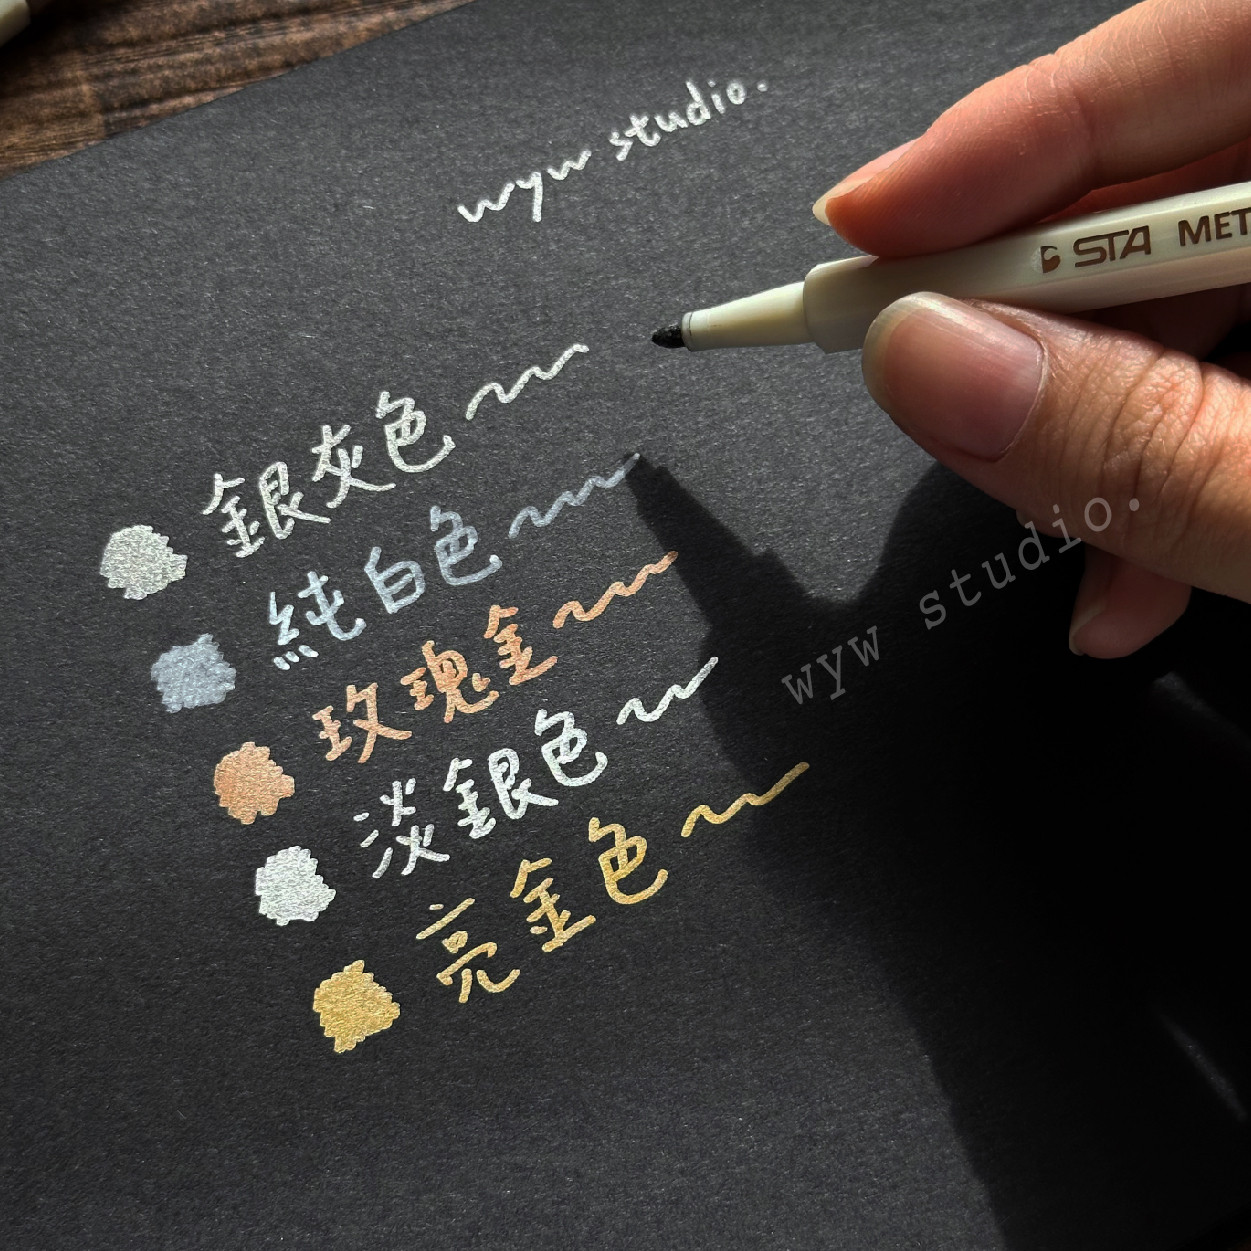 wyw studio.
STA MET
銀灰色
純白色
玫瑰金
淡銀色
亮金色
wyw studio.